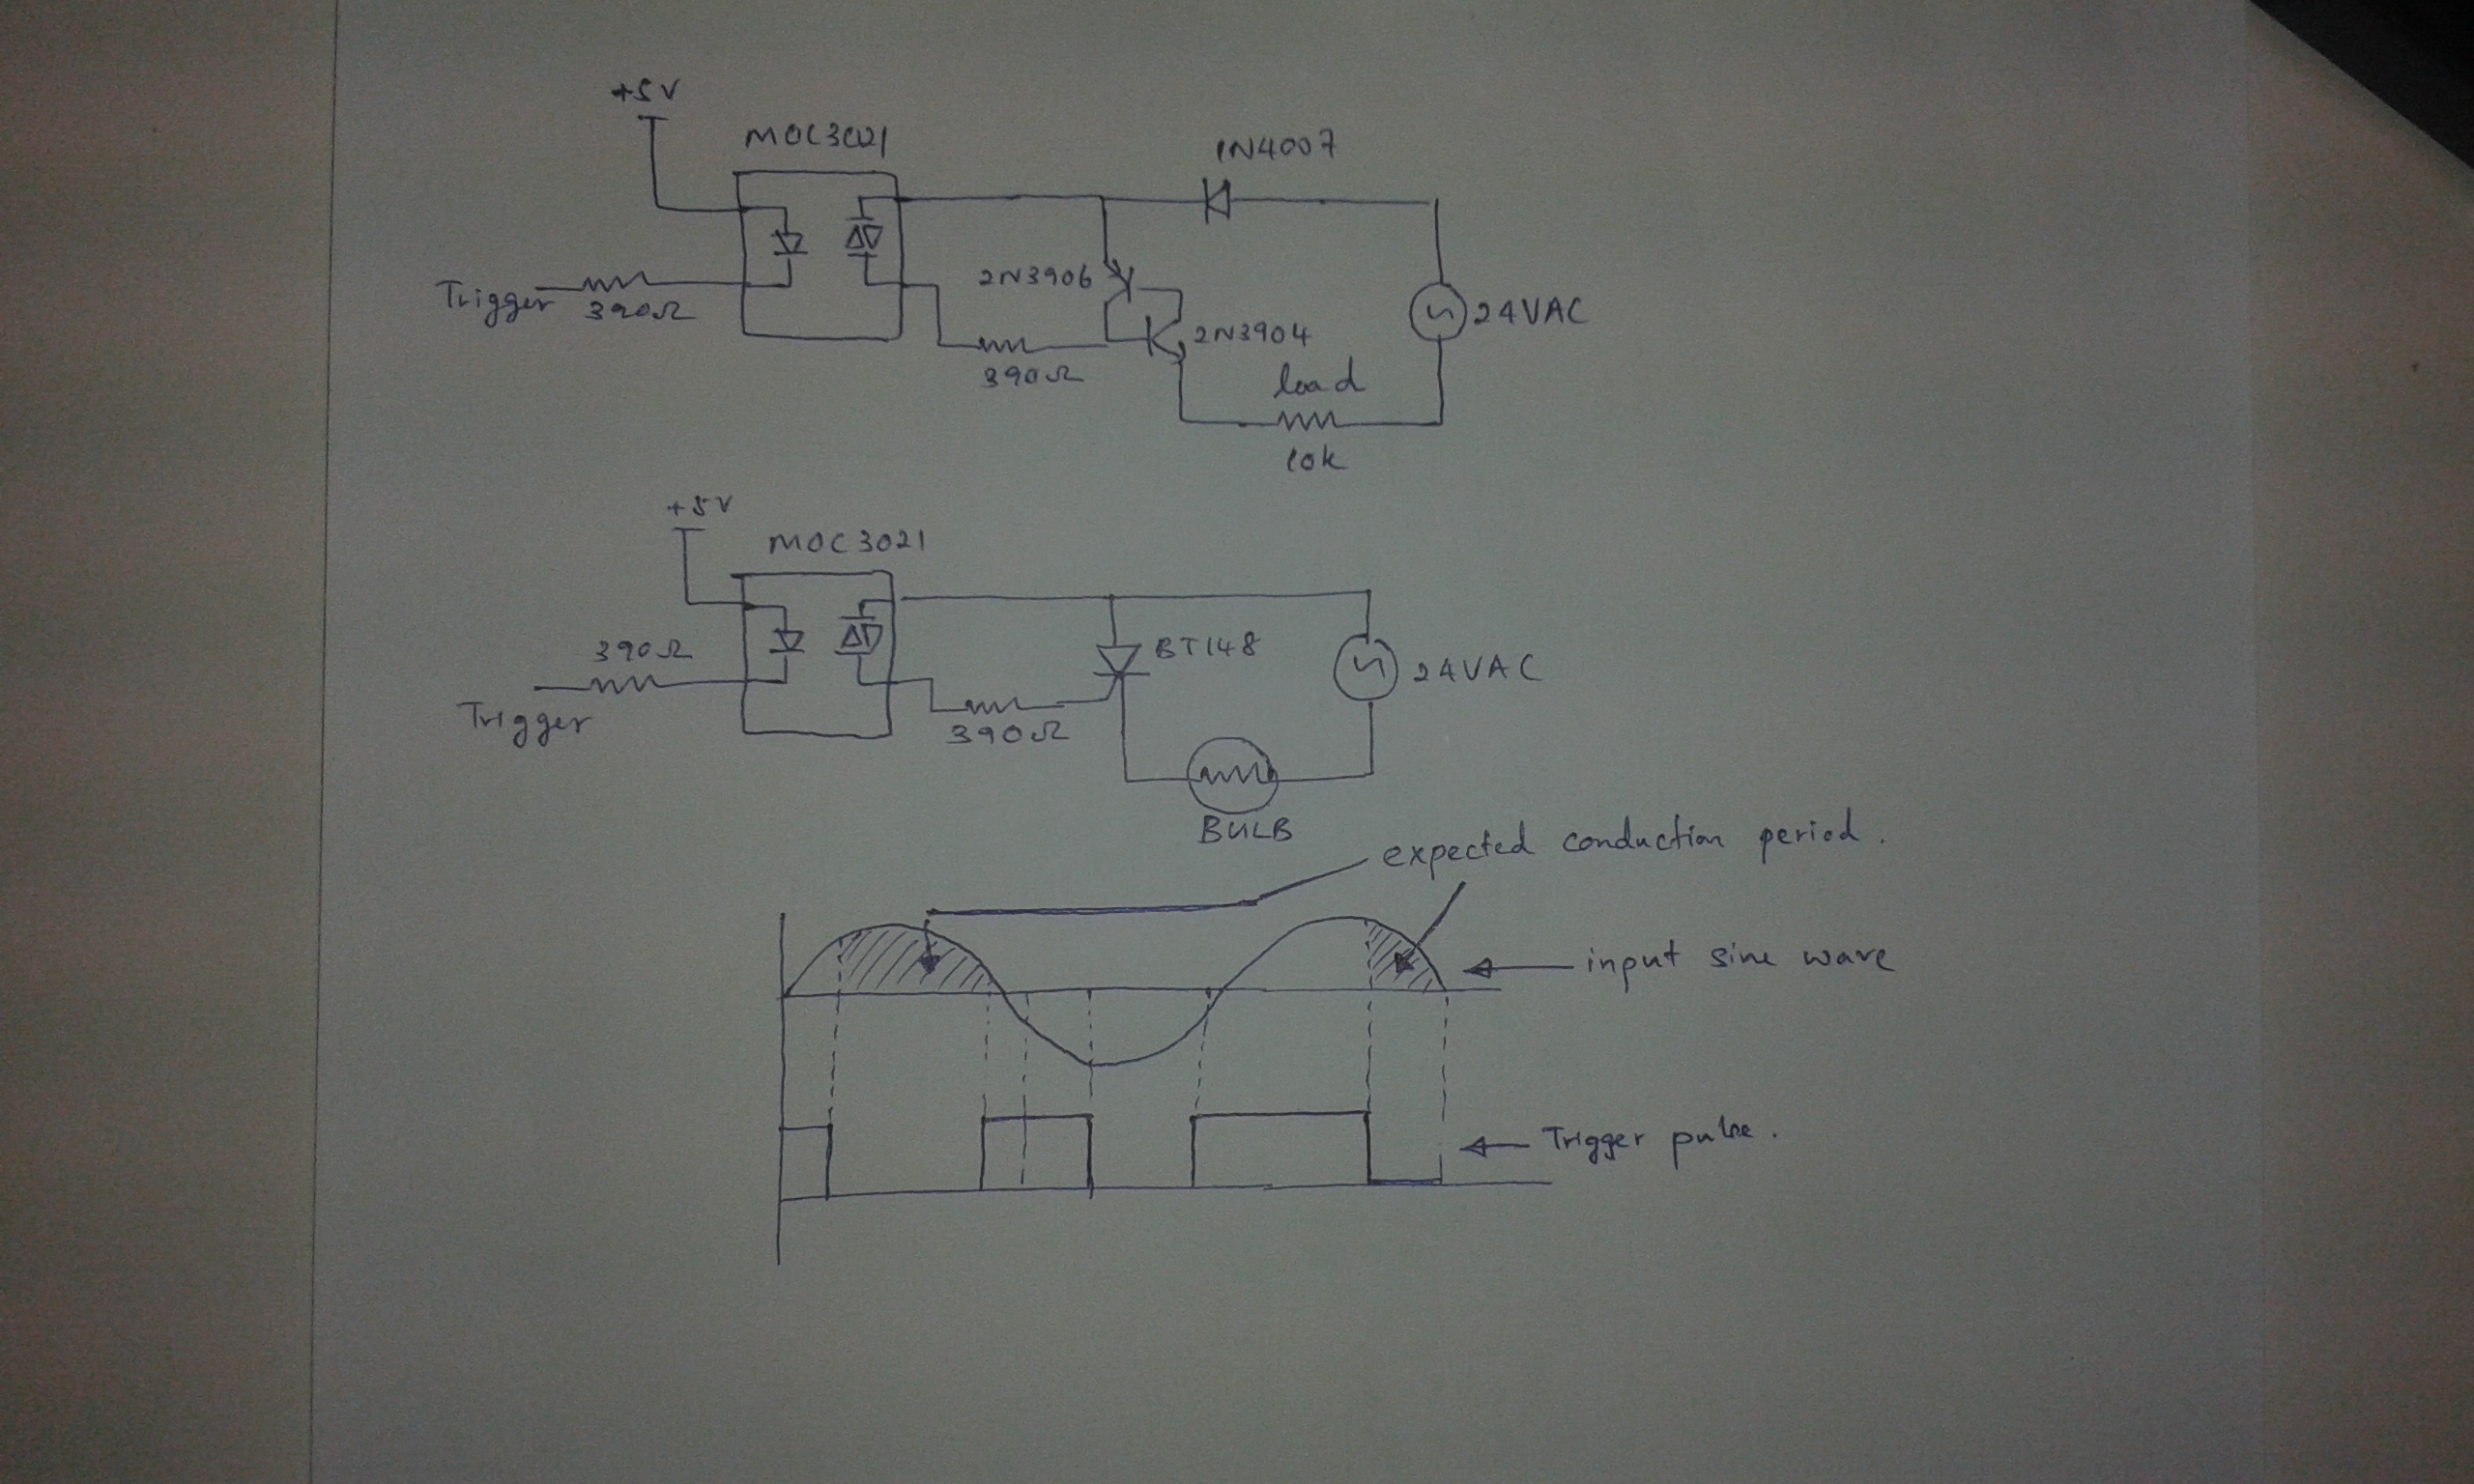 +5V
MOC3021
1N4007
2N3906
Trigger
390Ω
2N3904
24VAC
390Ω
load
10k
+5V
MOC3021
390Ω
BT148
24VAC
Trigger
390Ω
BULB
expected conduction period.
input sine wave
Trigger pulse.